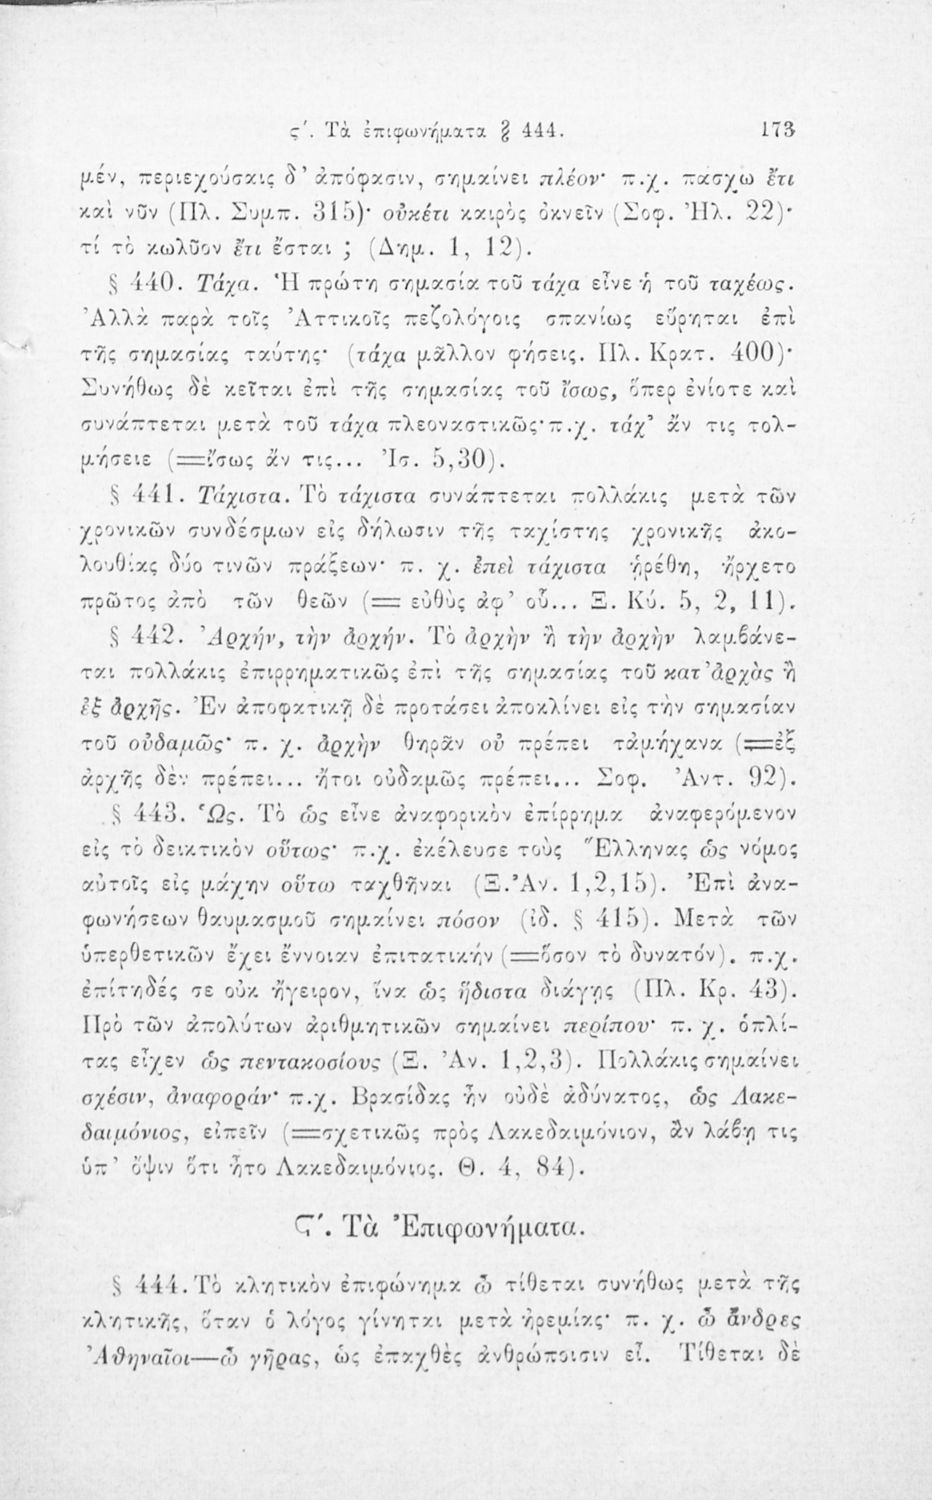 ς΄. Τὰ ἐπιφωνήματα § 444. 173
μέν, περιεχούσαις δ’ ἀπόφασιν, σημαίνει πλέον· π.χ. πάσχω ἔτι
καὶ νῦν (Πλ. Συμπ. 315)· οὐκέτι καιρὸς ὀκνεῖν (Σοφ. Ἠλ. 22)·
τί τὸ κωλῦον ἔτι ἔσται ; (Δημ. 1, 12).
§ 440. Τάχα. Ἡ πρώτη σημασία τοῦ τάχα εἶνε ἡ τοῦ ταχέως.
Ἀλλὰ παρὰ τοῖς Ἀττικοῖς πεζολόγοις σπανίως εὕρηται ἐπὶ
τῆς σημασίας ταύτης· (τάχα μᾶλλον φήσεις. Πλ. Κρατ. 400)·
Συνήθως δὲ κεῖται ἐπὶ τῆς σημασίας τοῦ ἴσως, ὅπερ ἐνίοτε καὶ
συνάπτεται μετὰ τοῦ τάχα πλεοναστικῶς· π.χ. τάχ’ ἄν τις τολ-
μήσειε (=ἴσως ἄν τις... Ἰσ. 5,30).
§ 441. Τάχιστα. Τὸ τάχιστα συνάπτεται πολλάκις μετὰ τῶν
χρονικῶν συνδέσμων εἰς δήλωσιν τῆς ταχίστης χρονικῆς ἀκο-
λουθίας δύο τινῶν πράξεων· π. χ. ἐπεὶ τάχιστα ᾑρέθη, ἤρχετο
πρῶτος ἀπὸ τῶν θεῶν (= εὐθὺς ἀφ’ οὗ... Ξ. Κύ. 5, 2, 11).
§ 442. Ἀρχήν, τὴν ἀρχήν. Τὸ ἀρχὴν ἢ τὴν ἀρχὴν λαμβάνε-
ται πολλάκις ἐπιρρηματικῶς ἐπὶ τῆς σημασίας τοῦ κατ’ ἀρχὰς ἢ
ἐξ ἀρχῆς. Ἐν ἀποφατικῇ δὲ προτάσει ἀποκλίνει εἰς τὴν σημασίαν
τοῦ οὐδαμῶς· π. χ. ἀρχὴν θηρᾶν οὐ πρέπει τἀμήχανα (=ἐξ
ἀρχῆς δὲν πρέπει... ἤτοι οὐδαμῶς πρέπει... Σοφ. Ἀντ. 92).
§ 443. Ὡς. Τὸ ὡς εἶνε ἀναφορικὸν ἐπίρρημα ἀναφερόμενον
εἰς τὸ δεικτικὸν οὕτως· π.χ. ἐκέλευσε τοὺς Ἕλληνας ὡς νόμος
αὐτοῖς εἰς μάχην οὕτω ταχθῆναι (Ξ. Ἀν. 1,2,15). Ἐπὶ ἀνα-
φωνήσεων θαυμασμοῦ σημαίνει πόσον (ἰδ. § 415). Μετὰ τῶν
ὑπερθετικῶν ἔχει ἔννοιαν ἐπιτατικήν (=ὅσον τὸ δυνατόν). π.χ.
ἐπίτηδές σε οὐκ ἤγειρον, ἵνα ὡς ἥδιστα διάγῃς (Πλ. Κρ. 43).
Πρὸ τῶν ἀπολύτων ἀριθμητικῶν σημαίνει περίπου· π. χ. ὁπλί-
τας εἶχεν ὡς πεντακοσίους (Ξ. Ἀν. 1,2,3). Πολλάκις σημαίνει
σχέσιν, ἀναφοράν· π.χ. Βρασίδας ἦν οὐδὲ ἀδύνατος, ὡς Λακε-
δαιμόνιος, εἰπεῖν (=σχετικῶς πρὸς Λακεδαιμόνιον, ἂν λάβῃ τις
ὑπ’ ὄψιν ὅτι ἦτο Λακεδαιμόνιος. Θ. 4, 84).
Ϛ΄. Τὰ Ἐπιφωνήματα.
§ 444. Τὸ κλητικὸν ἐπιφώνημα ὦ τίθεται συνήθως μετὰ τῆς
κλητικῆς, ὅταν ὁ λόγος γίνηται μετὰ ἠρεμίας· π. χ. ὦ ἄνδρες
Ἀθηναῖοι—ὦ γῆρας, ὡς ἐπαχθὲς ἀνθρώποισιν εἶ. Τίθεται δὲ